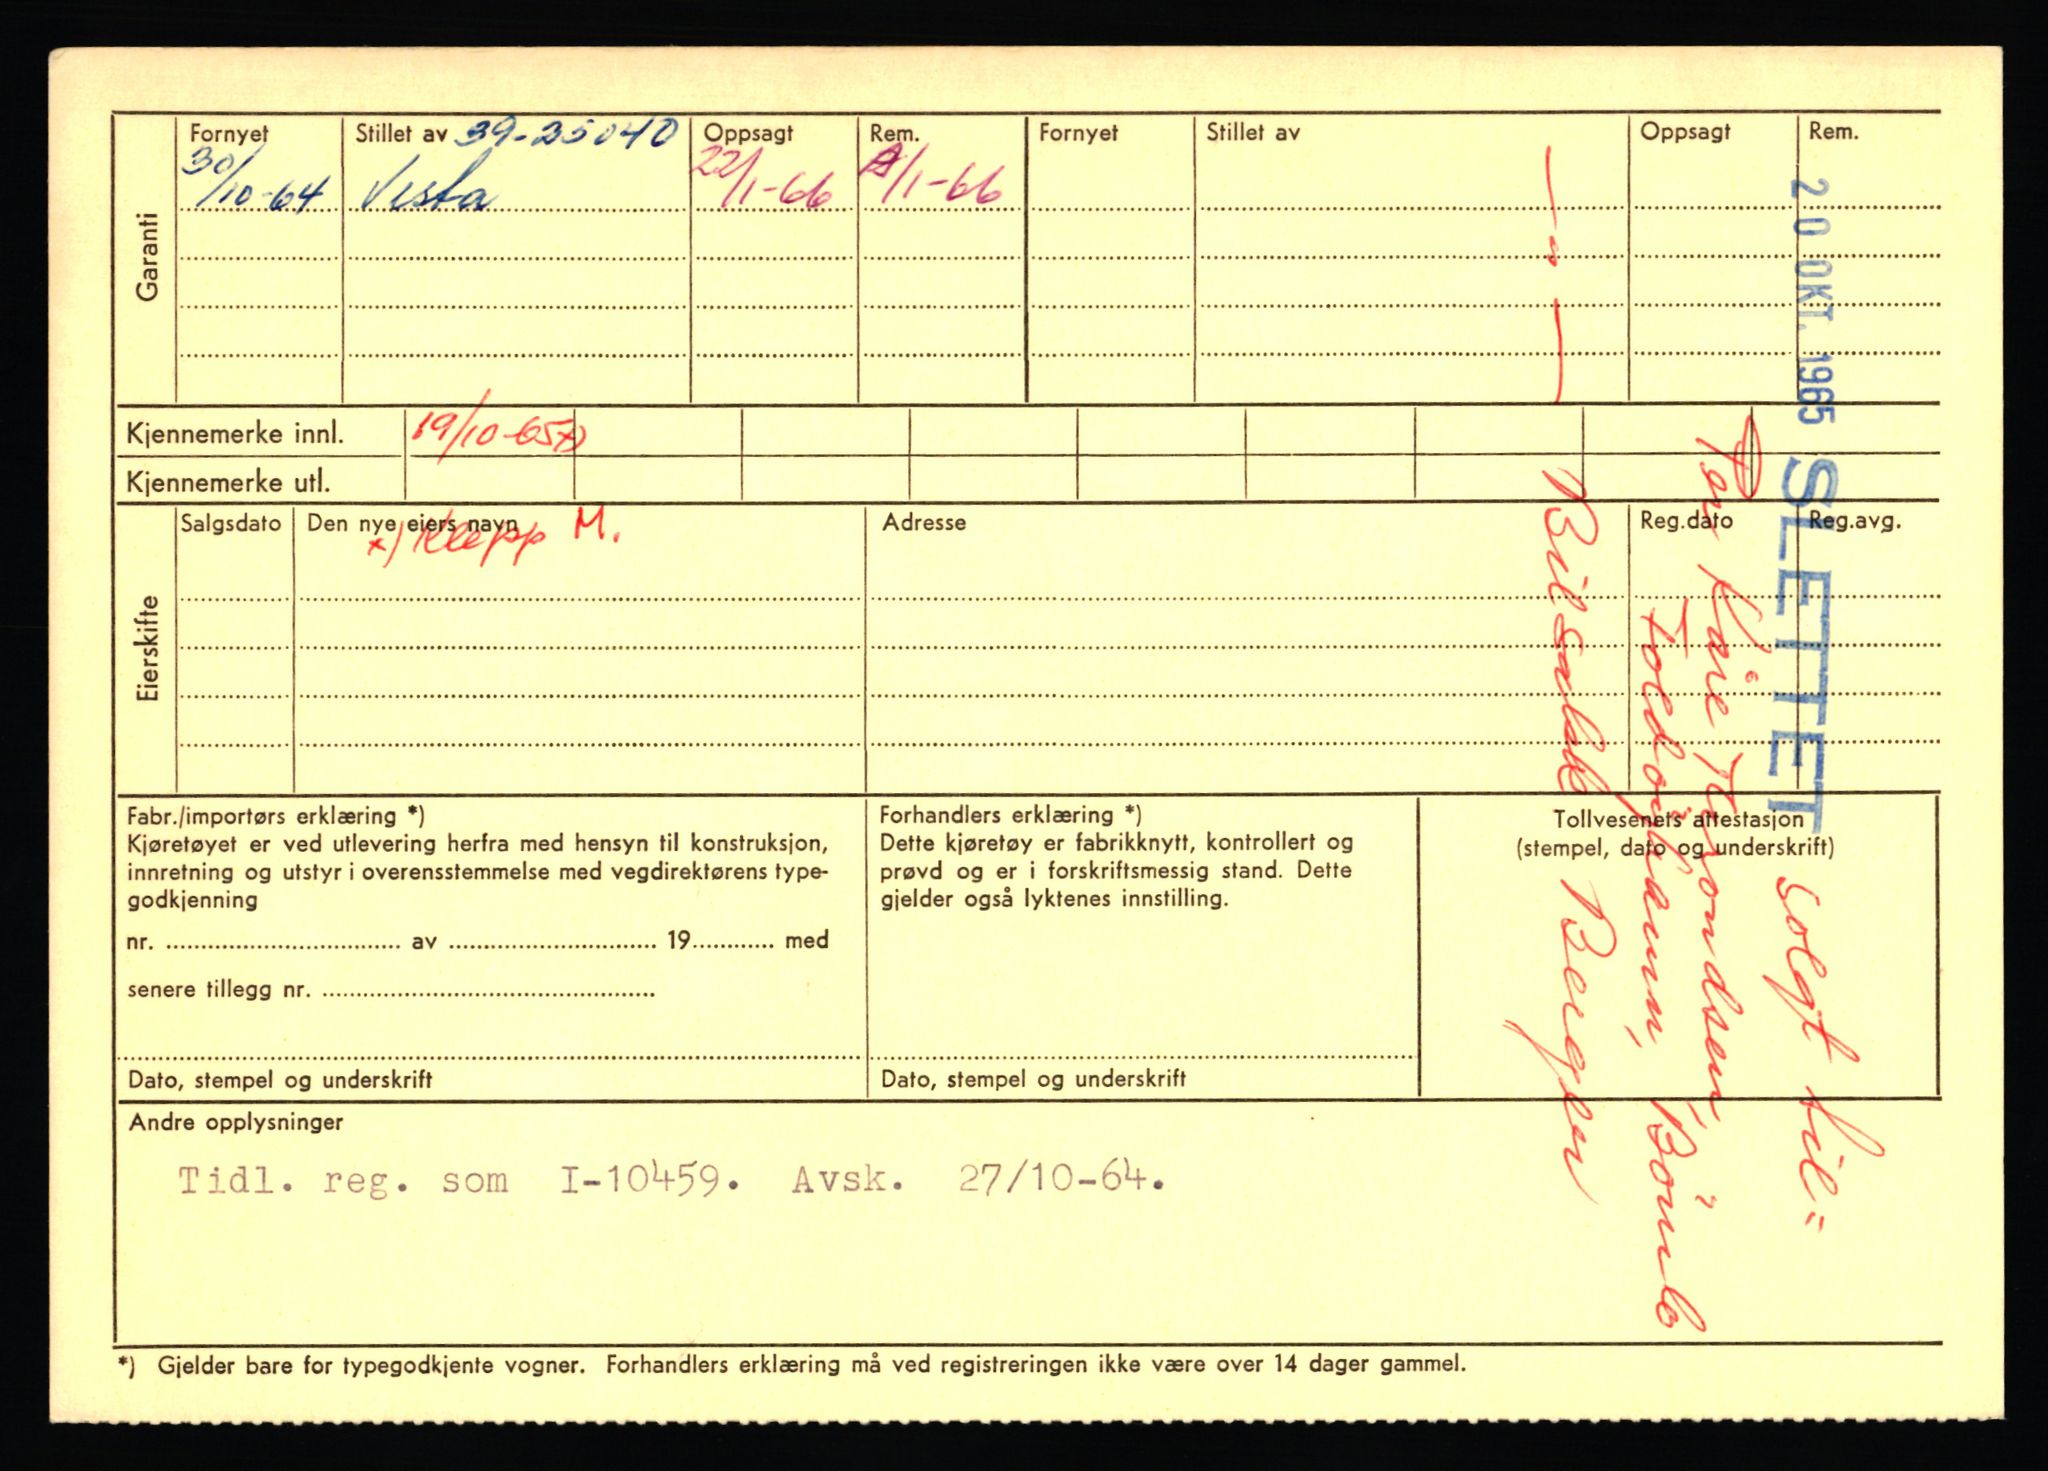 Garanti
Fornyet Stillet av 39-25040 Oppsagt Rem. Fornyet Stillet av Oppsagt Rem.
30/10-64 Vesta 22/1-66 /1-66
Kjennemerke innl. 19/10-65 x)
Kjennemerke utl.
Eierskifte
Salgsdato Den nye eiers navn Adresse Reg.dato Reg.avg.
x) Klepp M.
20 OKT. 1965 SLETTET
Solgt til:
Kåre
Bömlo
Bilsalde Bergen
Fabr./importørs erklæring *)
Kjøretøyet er ved utlevering herfra med hensyn til konstruksjon,
innretning og utstyr i overensstemmelse med vegdirektørens type-
godkjenning
nr. ................ av ................ 19............ med
senere tillegg nr. ................
Dato, stempel og underskrift
Forhandlers erklæring *)
Dette kjøretøy er fabrikknytt, kontrollert og
prøvd og er i forskriftsmessig stand. Dette
gjelder også lyktenes innstilling.
Dato, stempel og underskrift
Tollvesenets attestasjon
(stempel, dato og underskrift)
Andre opplysninger
Tidl. reg. som I-10459. Avsk. 27/10-64.
*) Gjelder bare for typegodkjente vogner. Forhandlers erklæring må ved registreringen ikke være over 14 dager gammel.